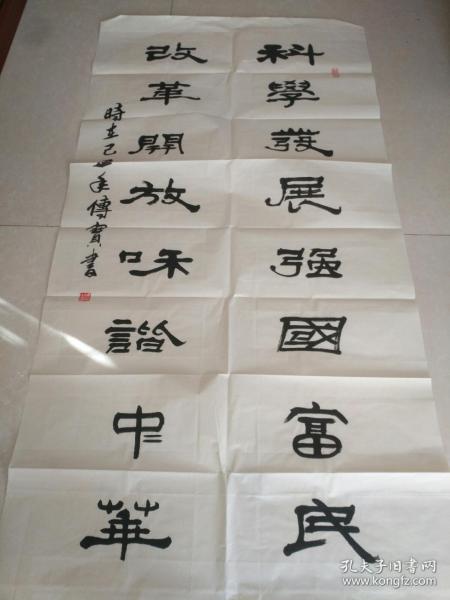 科學發展强國富民
改革開放咊諧中華
時在己丑年傳寶書
孔夫子旧书网
www.kongfz.com